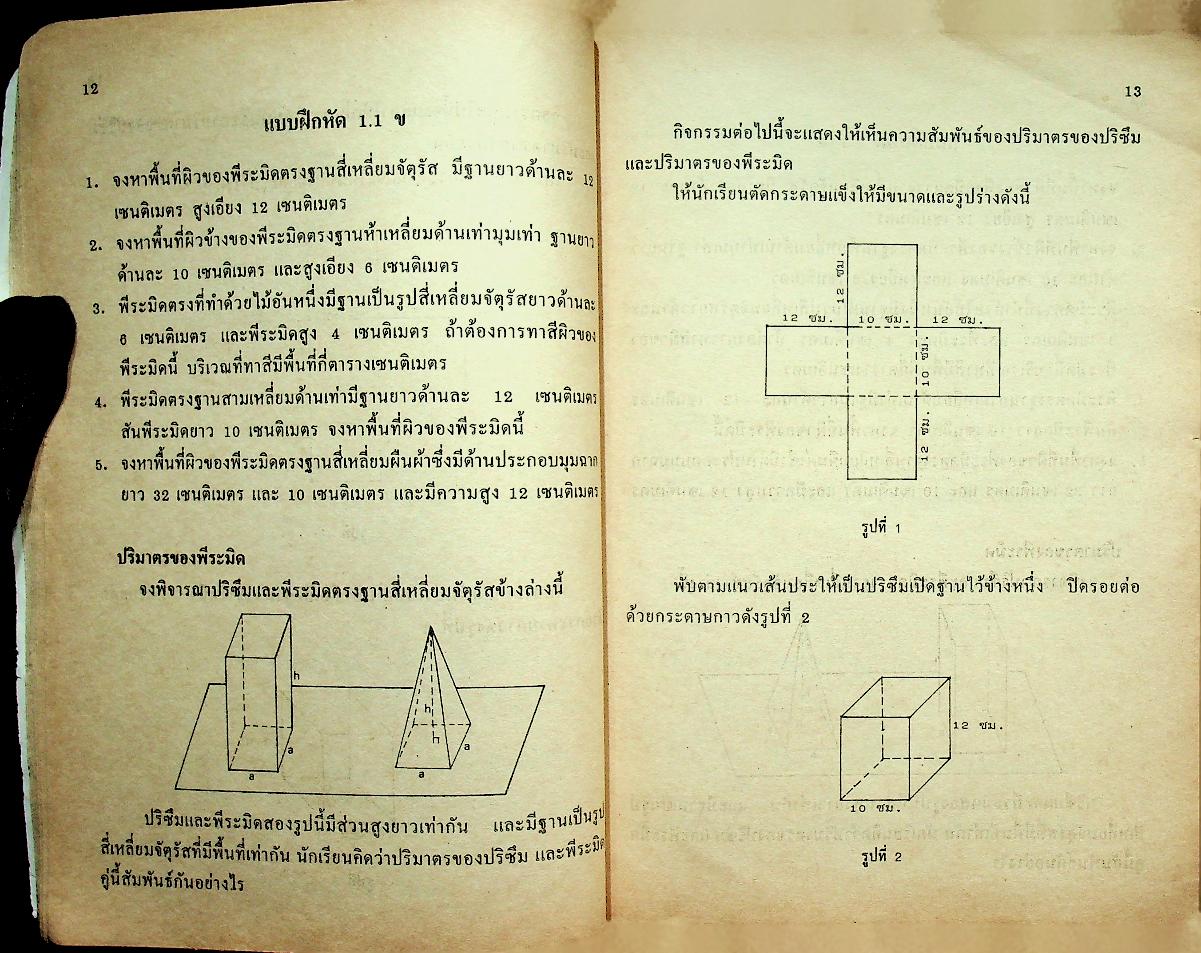 12
แบบฝึกหัด 1.1 ข
1. จงหาพื้นที่ผิวของพีระมิดตรงฐานสี่เหลี่ยมจัตุรัส มีฐานยาวด้านละ 12
เซนติเมตร สูงเอียง 12 เซนติเมตร
2. จงหาพื้นที่ผิวข้างของพีระมิดตรงฐานห้าเหลี่ยมด้านเท่ามุมเท่า ฐานยาว
ด้านละ 10 เซนติเมตร และสูงเอียง 6 เซนติเมตร
3. พีระมิดตรงที่ทำด้วยไม้อันหนึ่งมีฐานเป็นรูปสี่เหลี่ยมจัตุรัสยาวด้านละ
6 เซนติเมตร และพีระมิดสูง 4 เซนติเมตร ถ้าต้องการทาสีผิวของ
พีระมิดนี้ บริเวณที่ทาสีมีพื้นที่กี่ตารางเซนติเมตร
4. พีระมิดตรงฐานสามเหลี่ยมด้านเท่ามีฐานยาวด้านละ 12 เซนติเมตร
สันพีระมิดยาว 10 เซนติเมตร จงหาพื้นที่ผิวของพีระมิดนี้
5. จงหาพื้นที่ผิวของพีระมิดตรงฐานสี่เหลี่ยมผืนผ้าซึ่งมีด้านประกอบมุมฉาก
ยาว 32 เซนติเมตร และ 10 เซนติเมตร และมีความสูง 12 เซนติเมตร
ปริมาตรของพีระมิด
จงพิจารณาปริซึมและพีระมิดตรงฐานสี่เหลี่ยมจัตุรัสข้างล่างนี้
h
a
a
h
a
a
ปริซึมและพีระมิดสองรูปนี้มีส่วนสูงยาวเท่ากัน และมีฐานเป็นรูป
สี่เหลี่ยมจัตุรัสที่มีพื้นที่เท่ากัน นักเรียนคิดว่าปริมาตรของปริซึม และพีระมิด
คู่นี้สัมพันธ์กันอย่างไร
13
กิจกรรมต่อไปนี้จะแสดงให้เห็นความสัมพันธ์ของปริมาตรของปริซึม
และปริมาตรของพีระมิด
ให้นักเรียนตัดกระดาษแข็งให้มีขนาดและรูปร่างดังนี้
12 ซม.
12 ซม. 10 ซม. 12 ซม.
10 ซม.
12 ซม.
รูปที่ 1
พับตามแนวเส้นประให้เป็นปริซึมเปิดฐานไว้ข้างหนึ่ง ปิดรอยต่อ
ด้วยกระดาษกาวดังรูปที่ 2
12 ซม.
10 ซม.
รูปที่ 2